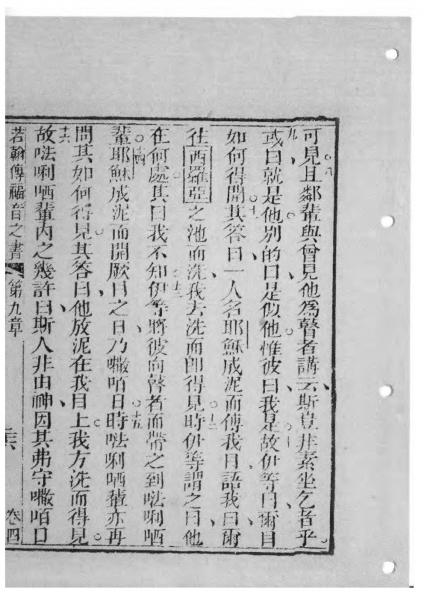 可見且鄰輩與曾見他為瞽者講云斯豈非素坐乞者乎
九或曰就是他別的曰是似他惟彼曰我是故伊等曰爾目
如何得開其答曰一人名耶穌成泥而傅我目語我曰爾
往西羅亞之池而洗我去洗而即得見時伊等謂之曰他
在何處其曰我不知伊等將彼向瞽者而帶之到𠵽唎哂
輩耶穌成泥而開厥目之日乃嗽咟日時𠵽唎哂輩亦再
問其如何得見其答曰他放泥在我目上我方洗而得見
十六故𠵽唎哂輩內之幾許曰斯人非由神因其弗守嗽咟日
若翰傳福音之書 第九章 卷四